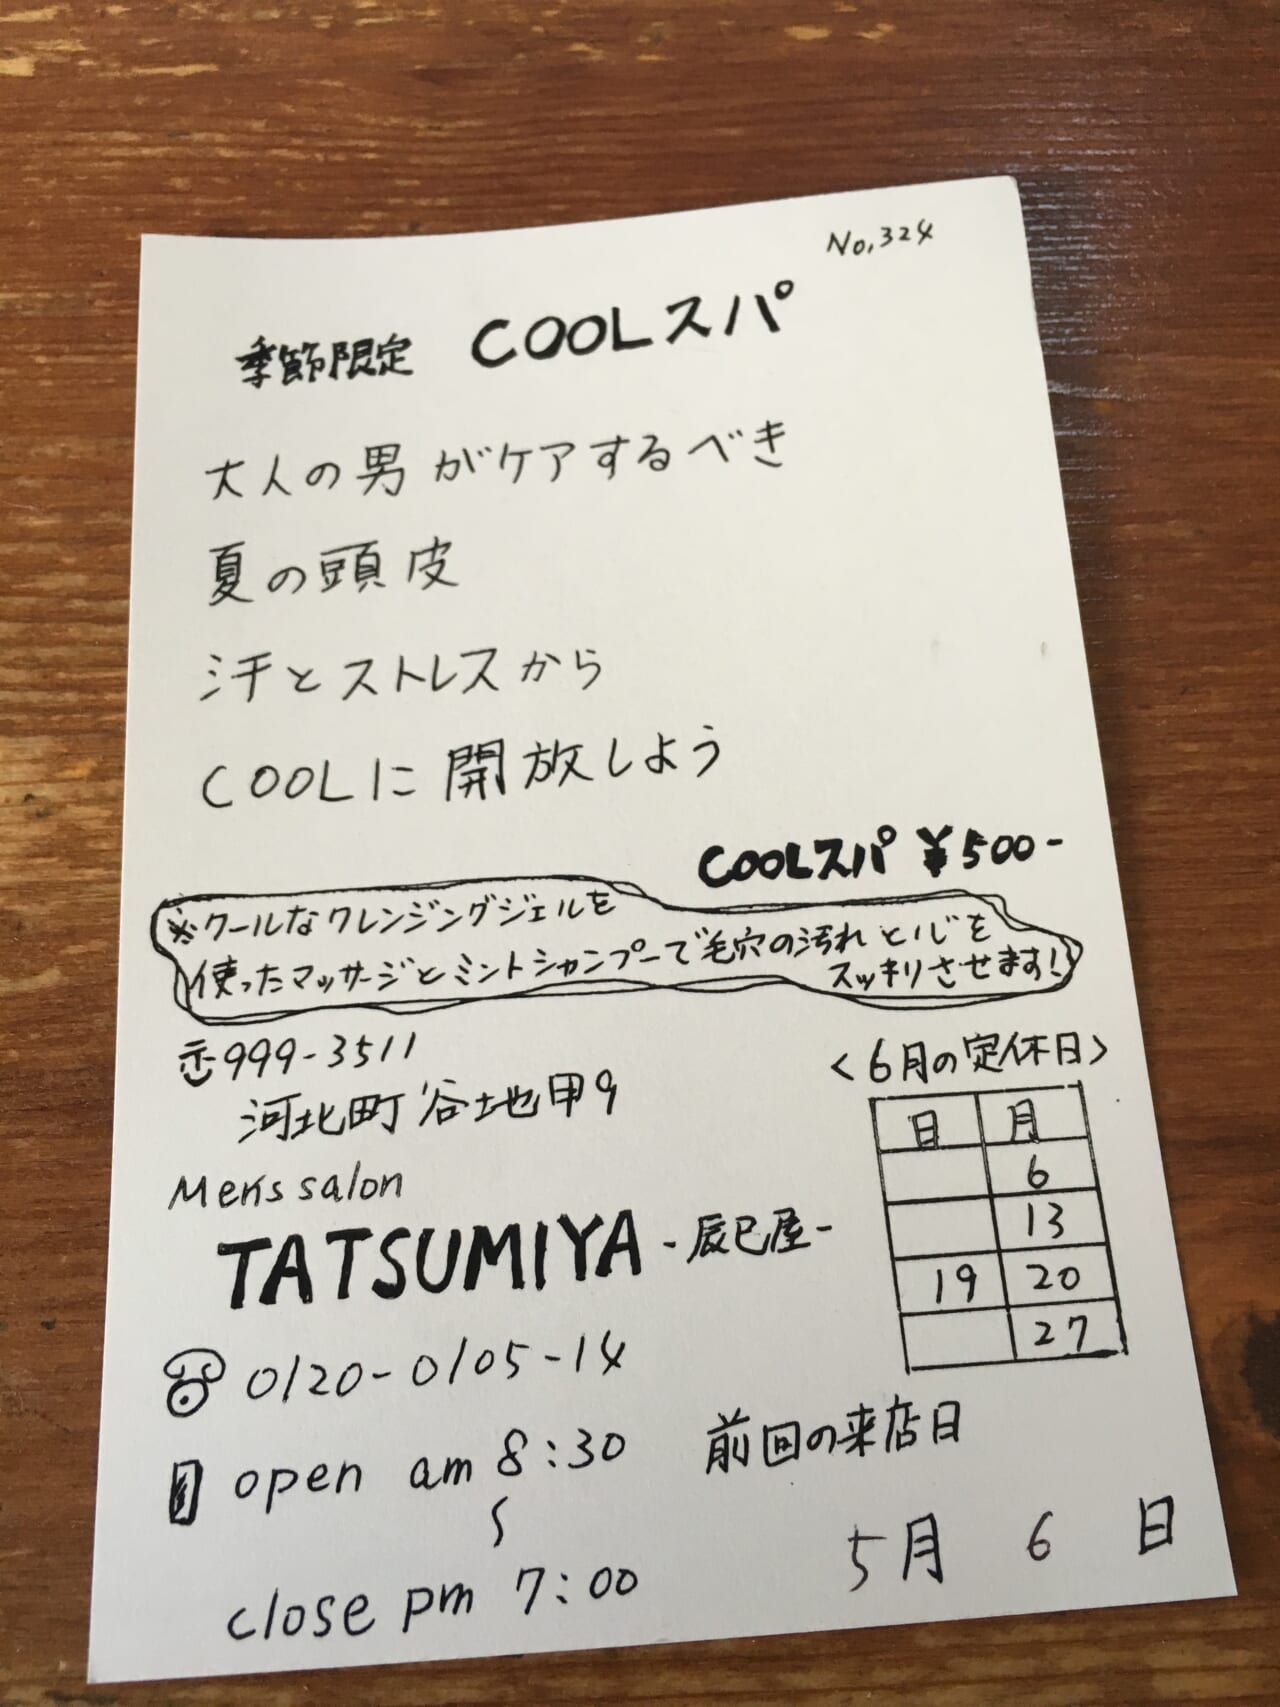 No,324
季節限定 COOLスパ
大人の男がケアするべき
夏の頭皮
汗とストレスから
COOLに開放しよう
COOLスパ ¥500-
※クールなクレンジングジェルを
使ったマッサージとミントシャンプーで毛穴の汚れと心を
スッキリさせます!
〠999-3511
河北町谷地甲9
Mens salon
TATSUMIYA -辰巳屋-
<6月の定休日>
日 月
6
13
19 20
27
☎0120-0105-14
open am 8:30
〜
close pm 7:00
前回の来店日
5月 6 日